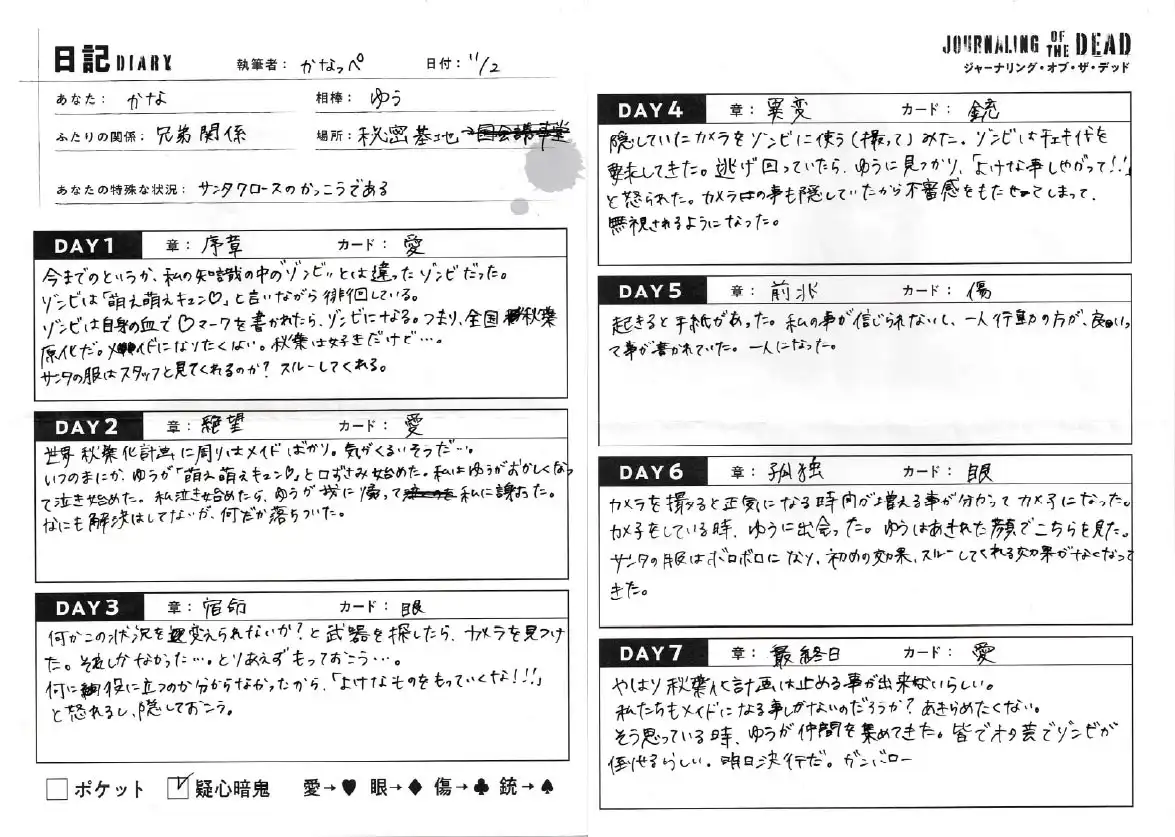 日記 DIARY 執筆者： かなっぺ 日付： 11/2
あなた： かな 相棒： ゆう
ふたりの関係： 兄弟関係 場所： 秘密基地
あなたの特殊な状況： サンタクロースのかっこうである
DAY1 章： 序章 カード： 愛
今までのというか、私の知識の中の“ゾンビ”とは違ったゾンビだった。
ゾンビは「萌え萌えキュン♡」と言いながら徘徊している。
ゾンビは自身の血で♡マークを書かれたら、ゾンビになる。つまり、全国秋葉
原化だ。メイドになりたくない。秋葉は好きだけど…。
サンタの服はスタッフと見てくれるのか？スルーしてくれる。
DAY2 章： 絶望 カード： 愛
世界秋葉化計画に周りはメイドばかり。気がくるいそうだ…。
いつのまにか、ゆうが「萌え萌えキュン♡」と口ずさみ始めた。私はゆうがおかしくなっ
て泣き始めた。私泣き始めたら、ゆうが我に帰って私に謝った。
なにも解決はしてないが、何だか落ちついた。
DAY3 章： 宿命 カード： 眼
何かこの状況を変えられないか？と武器を探したら、カメラを見つけ
た。それしかなかった…。とりあえずもっておこう…。
何に役に立つのか分からなかったから、「よけなものをもっていくな！！！」
と怒れるし、隠しておこう。
ポケット ☑疑心暗鬼 愛→♥ 眼→♦ 傷→♣ 銃→♠
JOURNALING OF THE DEAD
ジャーナリング・オブ・ザ・デッド
DAY4 章： 異変 カード： 銃
隠していたカメラをゾンビに使う（撮って）みた。ゾンビはチェキ代を
要求してきた。逃げ回っていたら、ゆうに見つかり、「よけな事しやがって！！」
と怒られた。カメラの事も隠していたから不審感をもたせてしまって、
無視されるようになった。
DAY5 章： 前兆 カード： 傷
起きると手紙があった。私の事が信じられないし、一人行動の方が、良いっ
て事が書かれていた。一人になった。
DAY6 章： 孤独 カード： 眼
カメラを撮ると正気になる時間が増える事が分かってカメ子になった。
カメ子をしている時、ゆうに出会った。ゆうはあきれた顔でこちらを見た。
サンタの服はボロボロになり、初めの効果、スルーしてくれる効果がなくなって
きた。
DAY7 章： 最終日 カード： 愛
やはり秋葉化計画は止める事が出来ないらしい。
私たちもメイドになる事しかないのだろうか？あきらめたくない。
そう思っている時、ゆうが仲間を集めてきた。皆でオタ芸でゾンビが
倒せるらしい。明日決行だ。ガンバロー